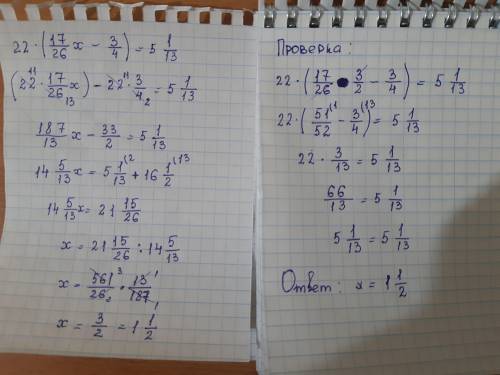 22 · (17/26 x − 3/4) = 5 1/13
(22¹¹ · 17/26₁₃ x) − 22¹¹ · 3/4₂ = 5 1/13
187/13 x − 33/2 = 5 1/13
14 5/13 x = 5 1/13⁽² + 16 1/2⁽¹³
14 5/13 x = 21 15/26
x = 21 15/26 : 14 5/13
x = 561³/26₂ · 13¹/187₁
x = 3/2 = 1 1/2
Проверка:
22 · (17/26 · 3/2 − 3/4) = 5 1/13
22 · (51/52⁽¹ − 3/4⁽¹³) = 5 1/13
22 · 3/13 = 5 1/13
66/13 = 5 1/13
5 1/13 = 5 1/13
Ответ: x = 1 1/2